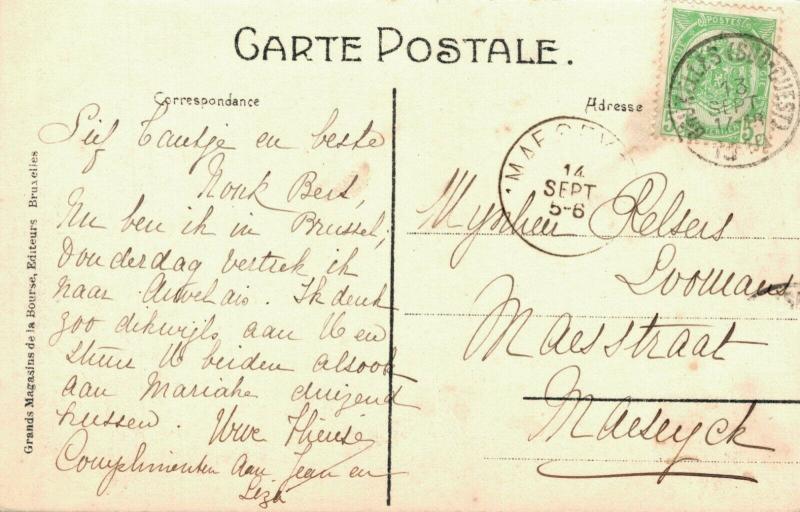 CARTE POSTALE.
Correspondance
Adresse
Grands Magasins de la Bourse, Editeurs Bruxelles
Tantje en beste
Nonk Bert,
Nu ben ik in Brussel,
Donderdag vertrek ik
naar Auvelais. Ik denk
zoo dikwijls aan U en
stuur U beiden alsook
aan Mariake duizend
kussen. Uwe Thérèse
Complimenten aan Jean en
Liza
Mynheer
Loomans
Maesstraat
Maeseyck
14
SEPT
5-6
13
SEPT
POSTES
5